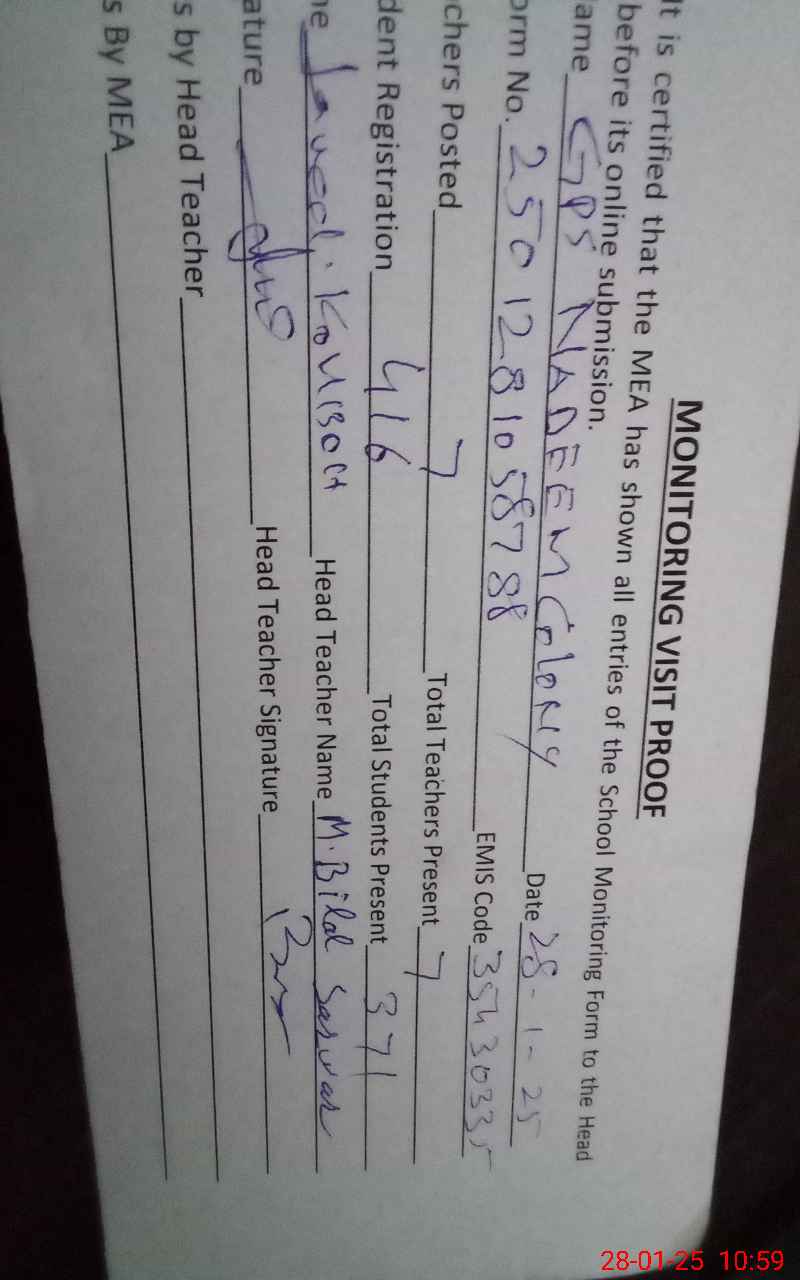 MONITORING VISIT PROOF
It is certified that the MEA has shown all entries of the School Monitoring Form to the Head
before its online submission.
ame GPS NADEEM Colony Date 28-1-25
orm No. 2501281058788 EMIS Code 35430335
chers Posted 7 Total Teachers Present 7
dent Registration 416 Total Students Present 371
ne Javed. Head Teacher Name M. Bilal Sarwar
ature Head Teacher Signature
s by Head Teacher
s By MEA
28-01-25 10:59